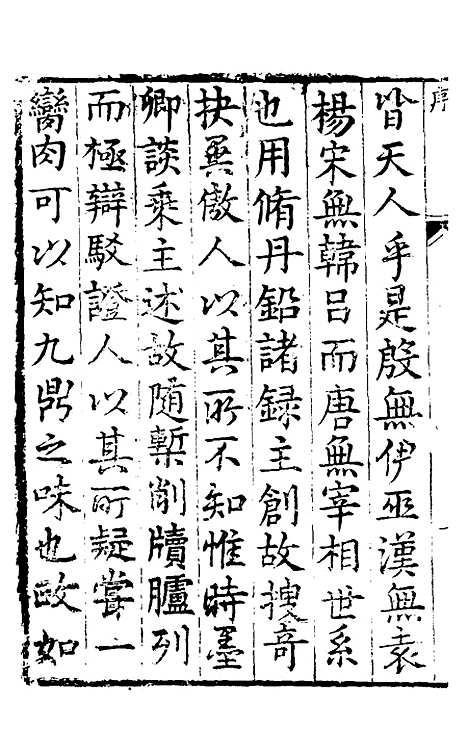 皆天人乎是殷無伊巫漢無袁
楊宋無韓呂而唐無宰相世系
也用脩丹鉛諸録主創故搜奇
抉異傲人以其所不知惟時墨
卿談乗主述故隨槧削牘臚列
而極辯駁證人以其所疑嘗一
臠肉可以知九鼎之味也政如
序